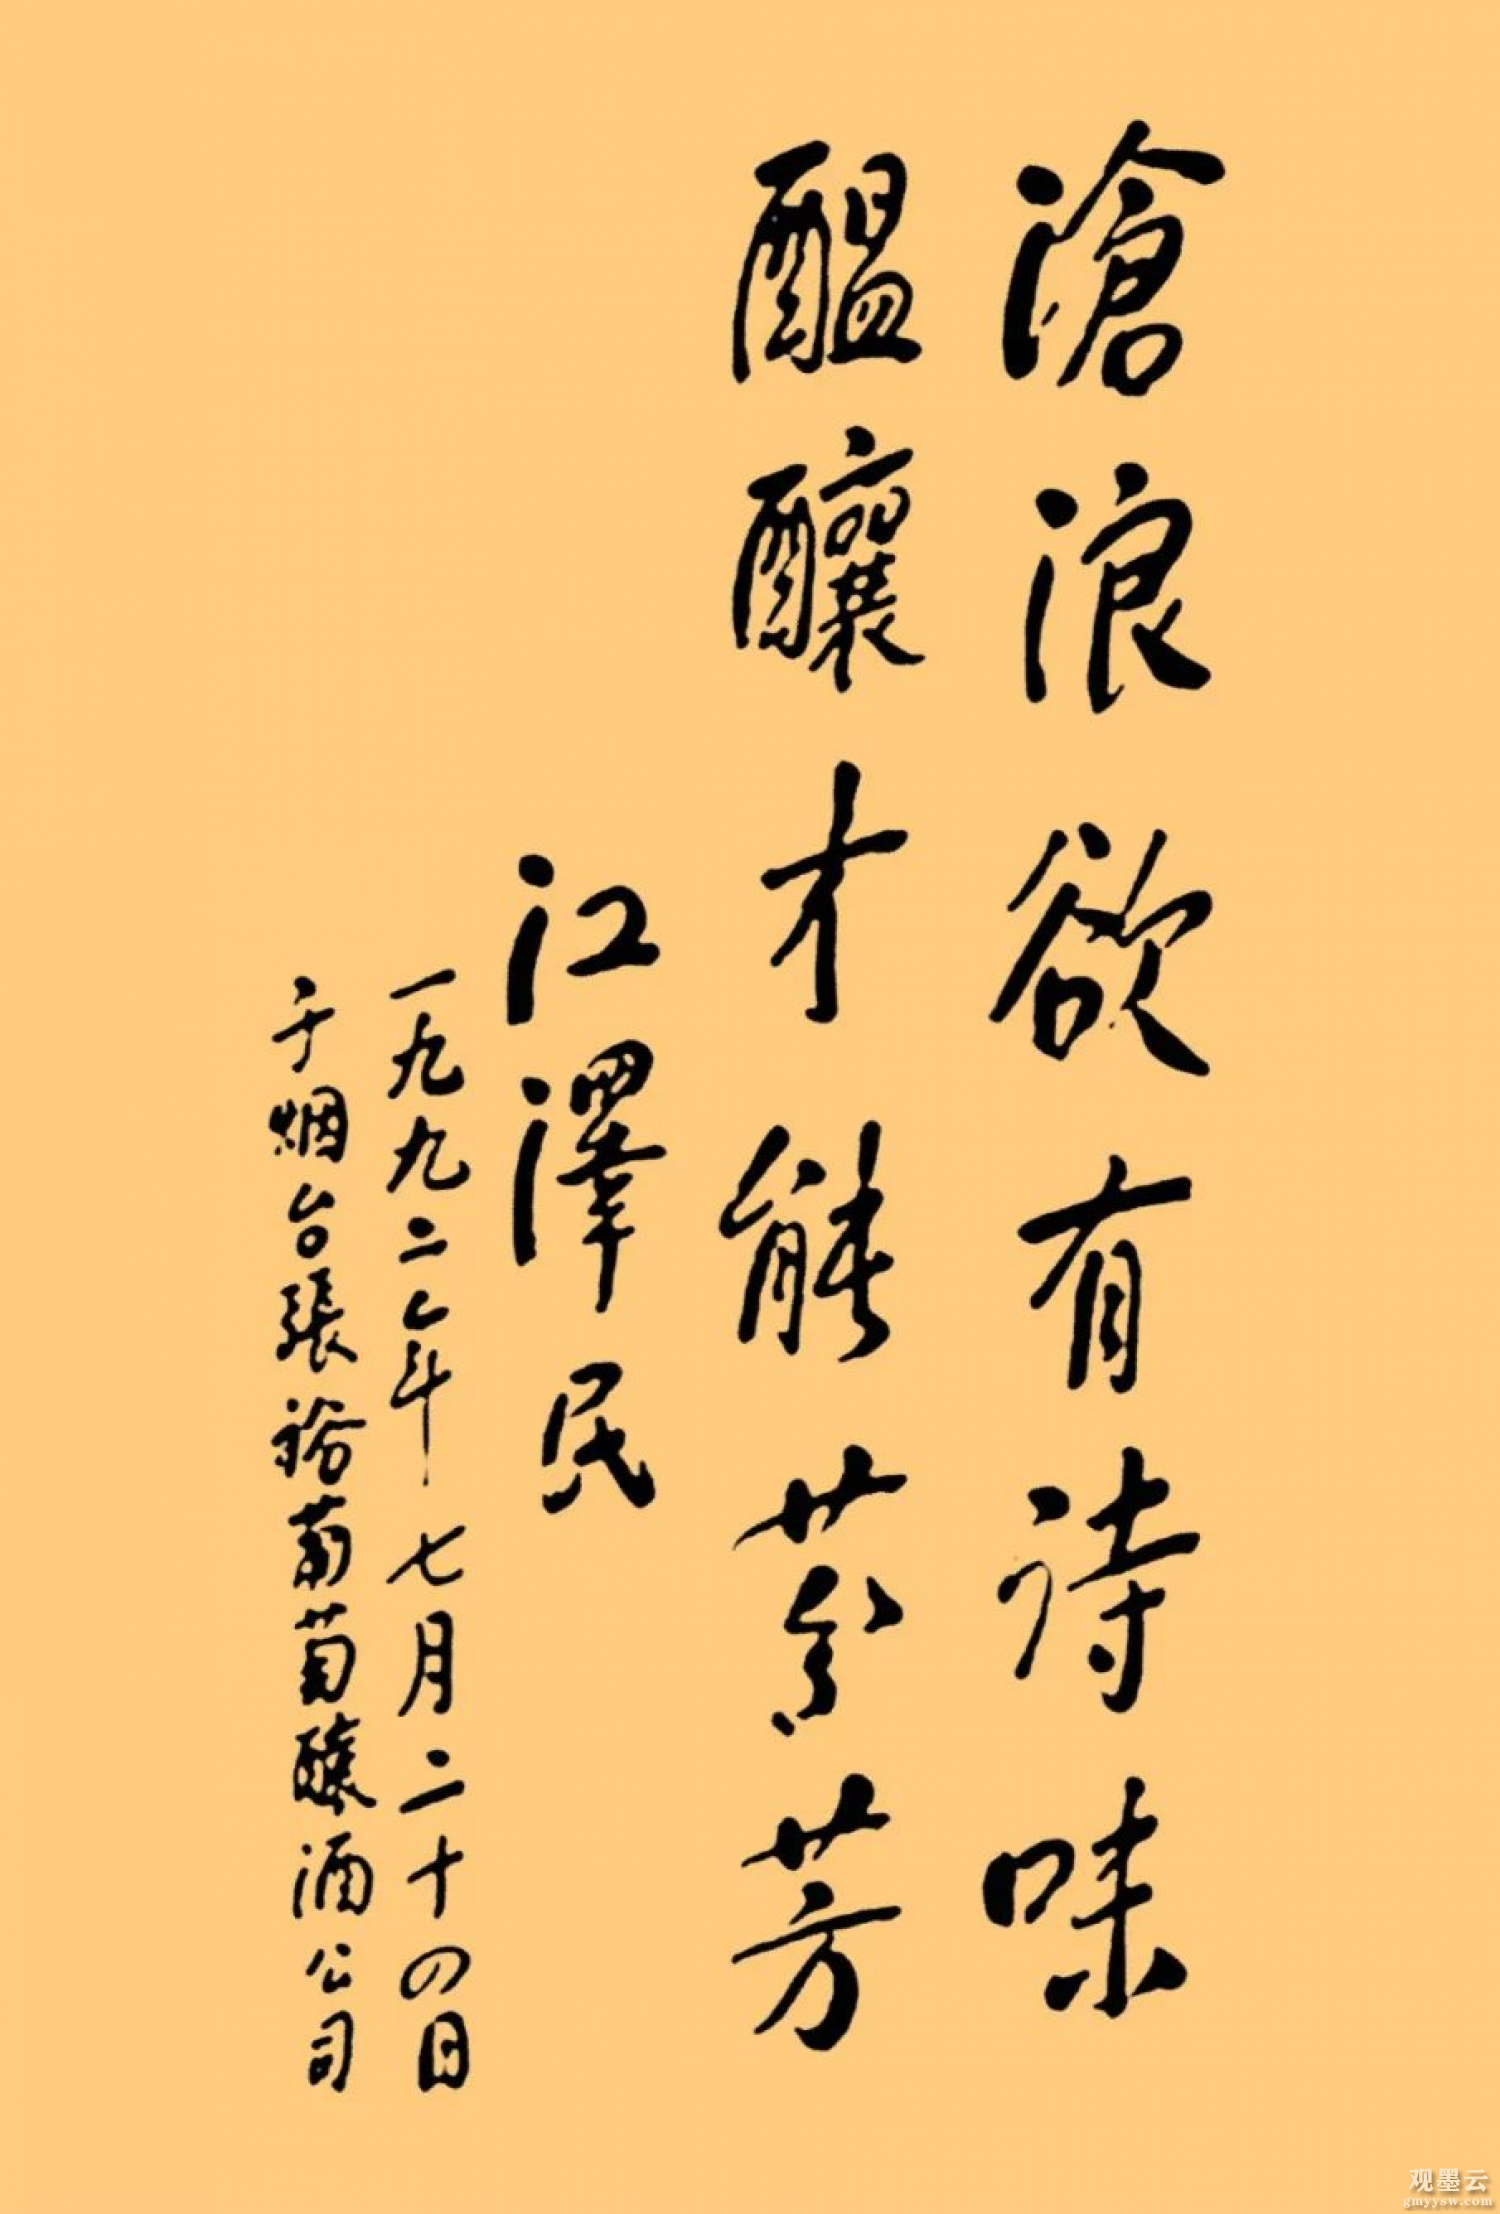 滄浪欲有詩味
醖釀才能芬芳
江澤民
一九九二年七月二十四日
于烟台張裕葡萄釀酒公司
观墨云
gmyysw.com